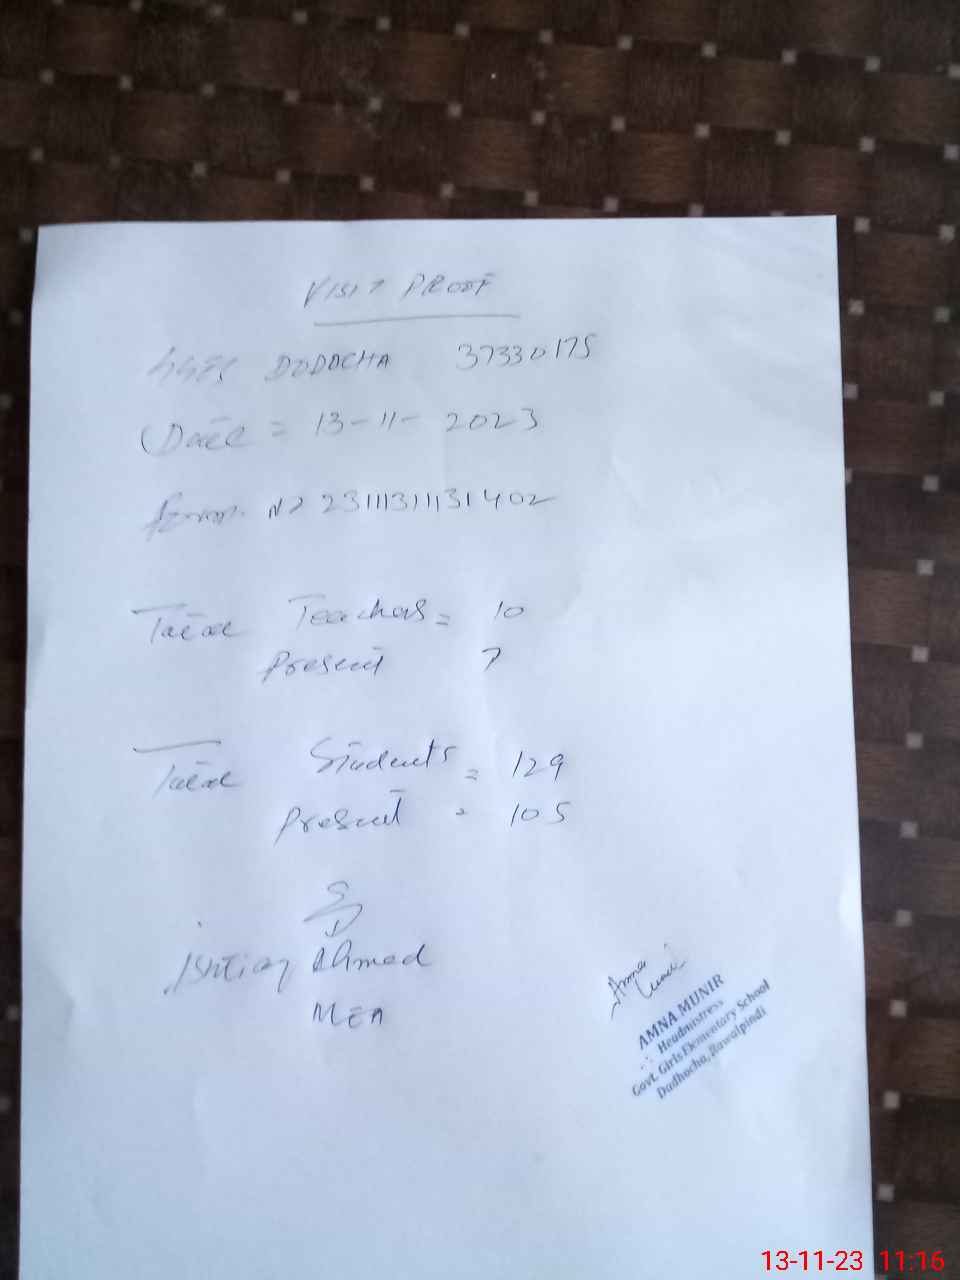 VISIT PROOF
GGES DODOCHA 37330175
Date = 13-11-2023
Form No 2311131131402
Total Teachers = 10
Present 7
Total Students = 129
Present = 105
SD
Ishtiaq Ahmed
MEA
Amna
AMNA MUNIR
Headmistress
Govt. Girls Elementary School
Dadhocha, Rawalpindi
13-11-23 11:16